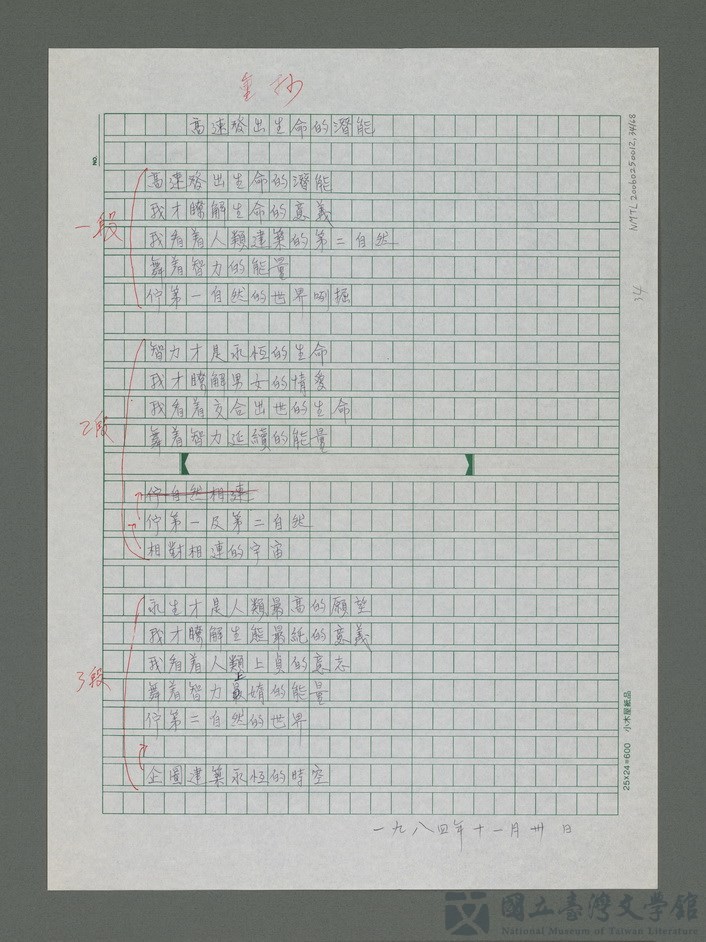 重抄
高速發出生命的潛能
NO.
NMTL20060250012, 34/68
34
一段
高速發出生命的潛能
我才瞭解生命的意義
我看着人類建築的第二自然
舞着智力的能量
佇第一自然的世界咧掘
2段
智力才是永恆的生命
我才瞭解男女的情愛
我看着交合出世的生命
舞着智力延續的能量
佇自然相連
佇第一及第二自然
相對相連的宇宙
3段
永生才是人類最高的願望
我才瞭解生能最純的意義
我看着人類上貞的意志
舞着智力上的能量
佇第二自然的世界
企圖建築永恆的時空
25×24=600 小木屋紙品
一九八四年十一月卅日
國立臺灣文學館
National Museum of Taiwan Literature